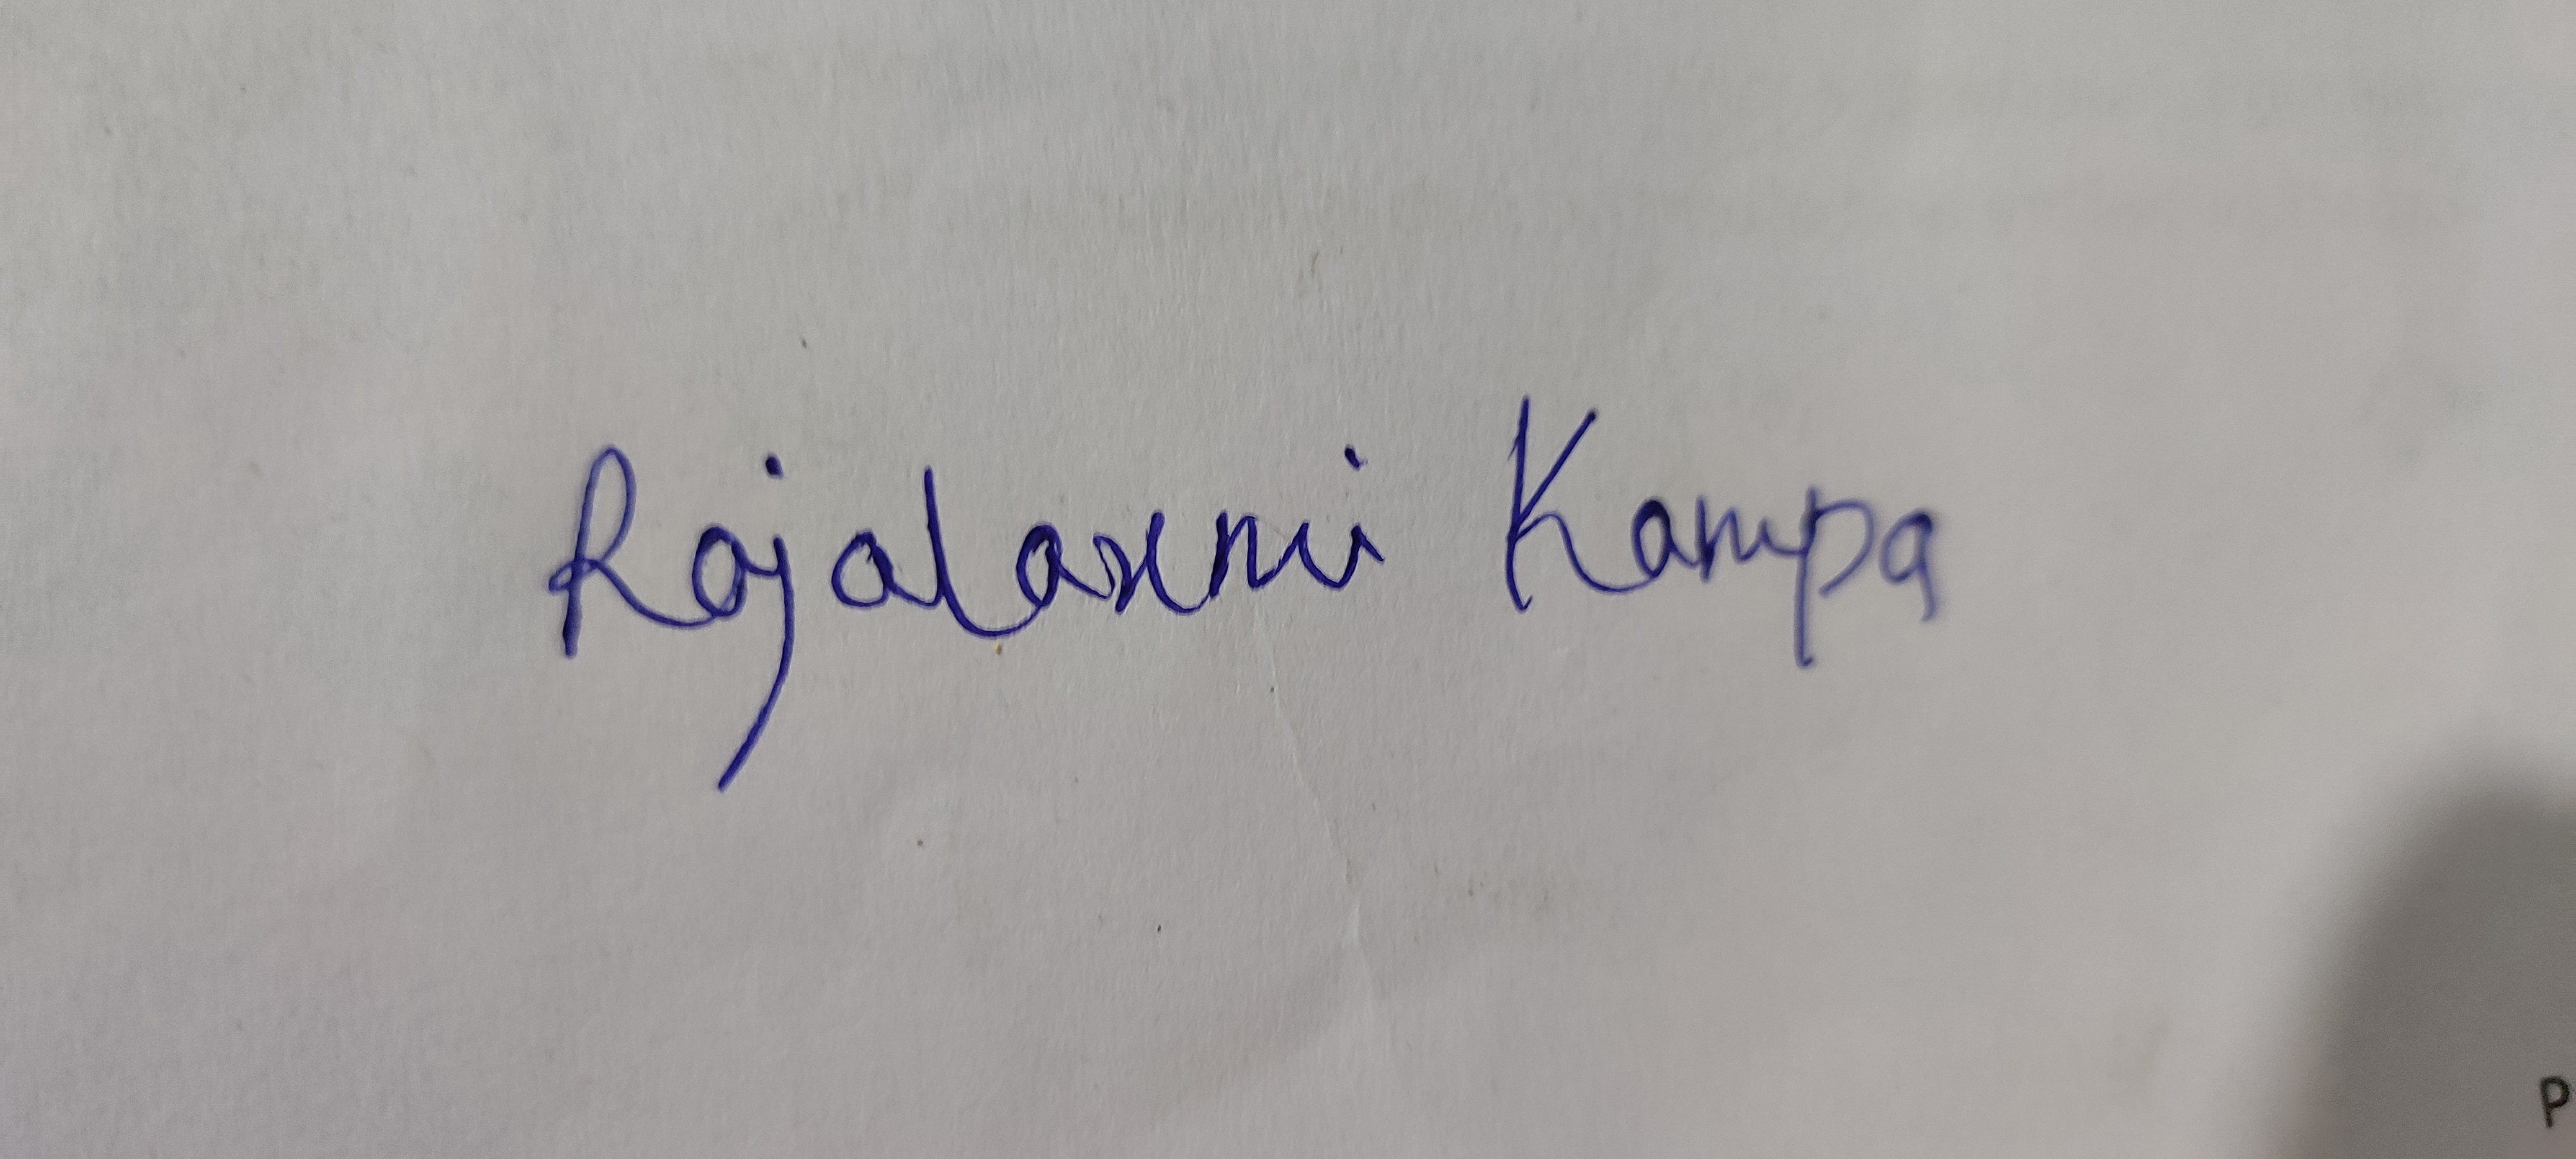 Rajalaxmi Kampa
P